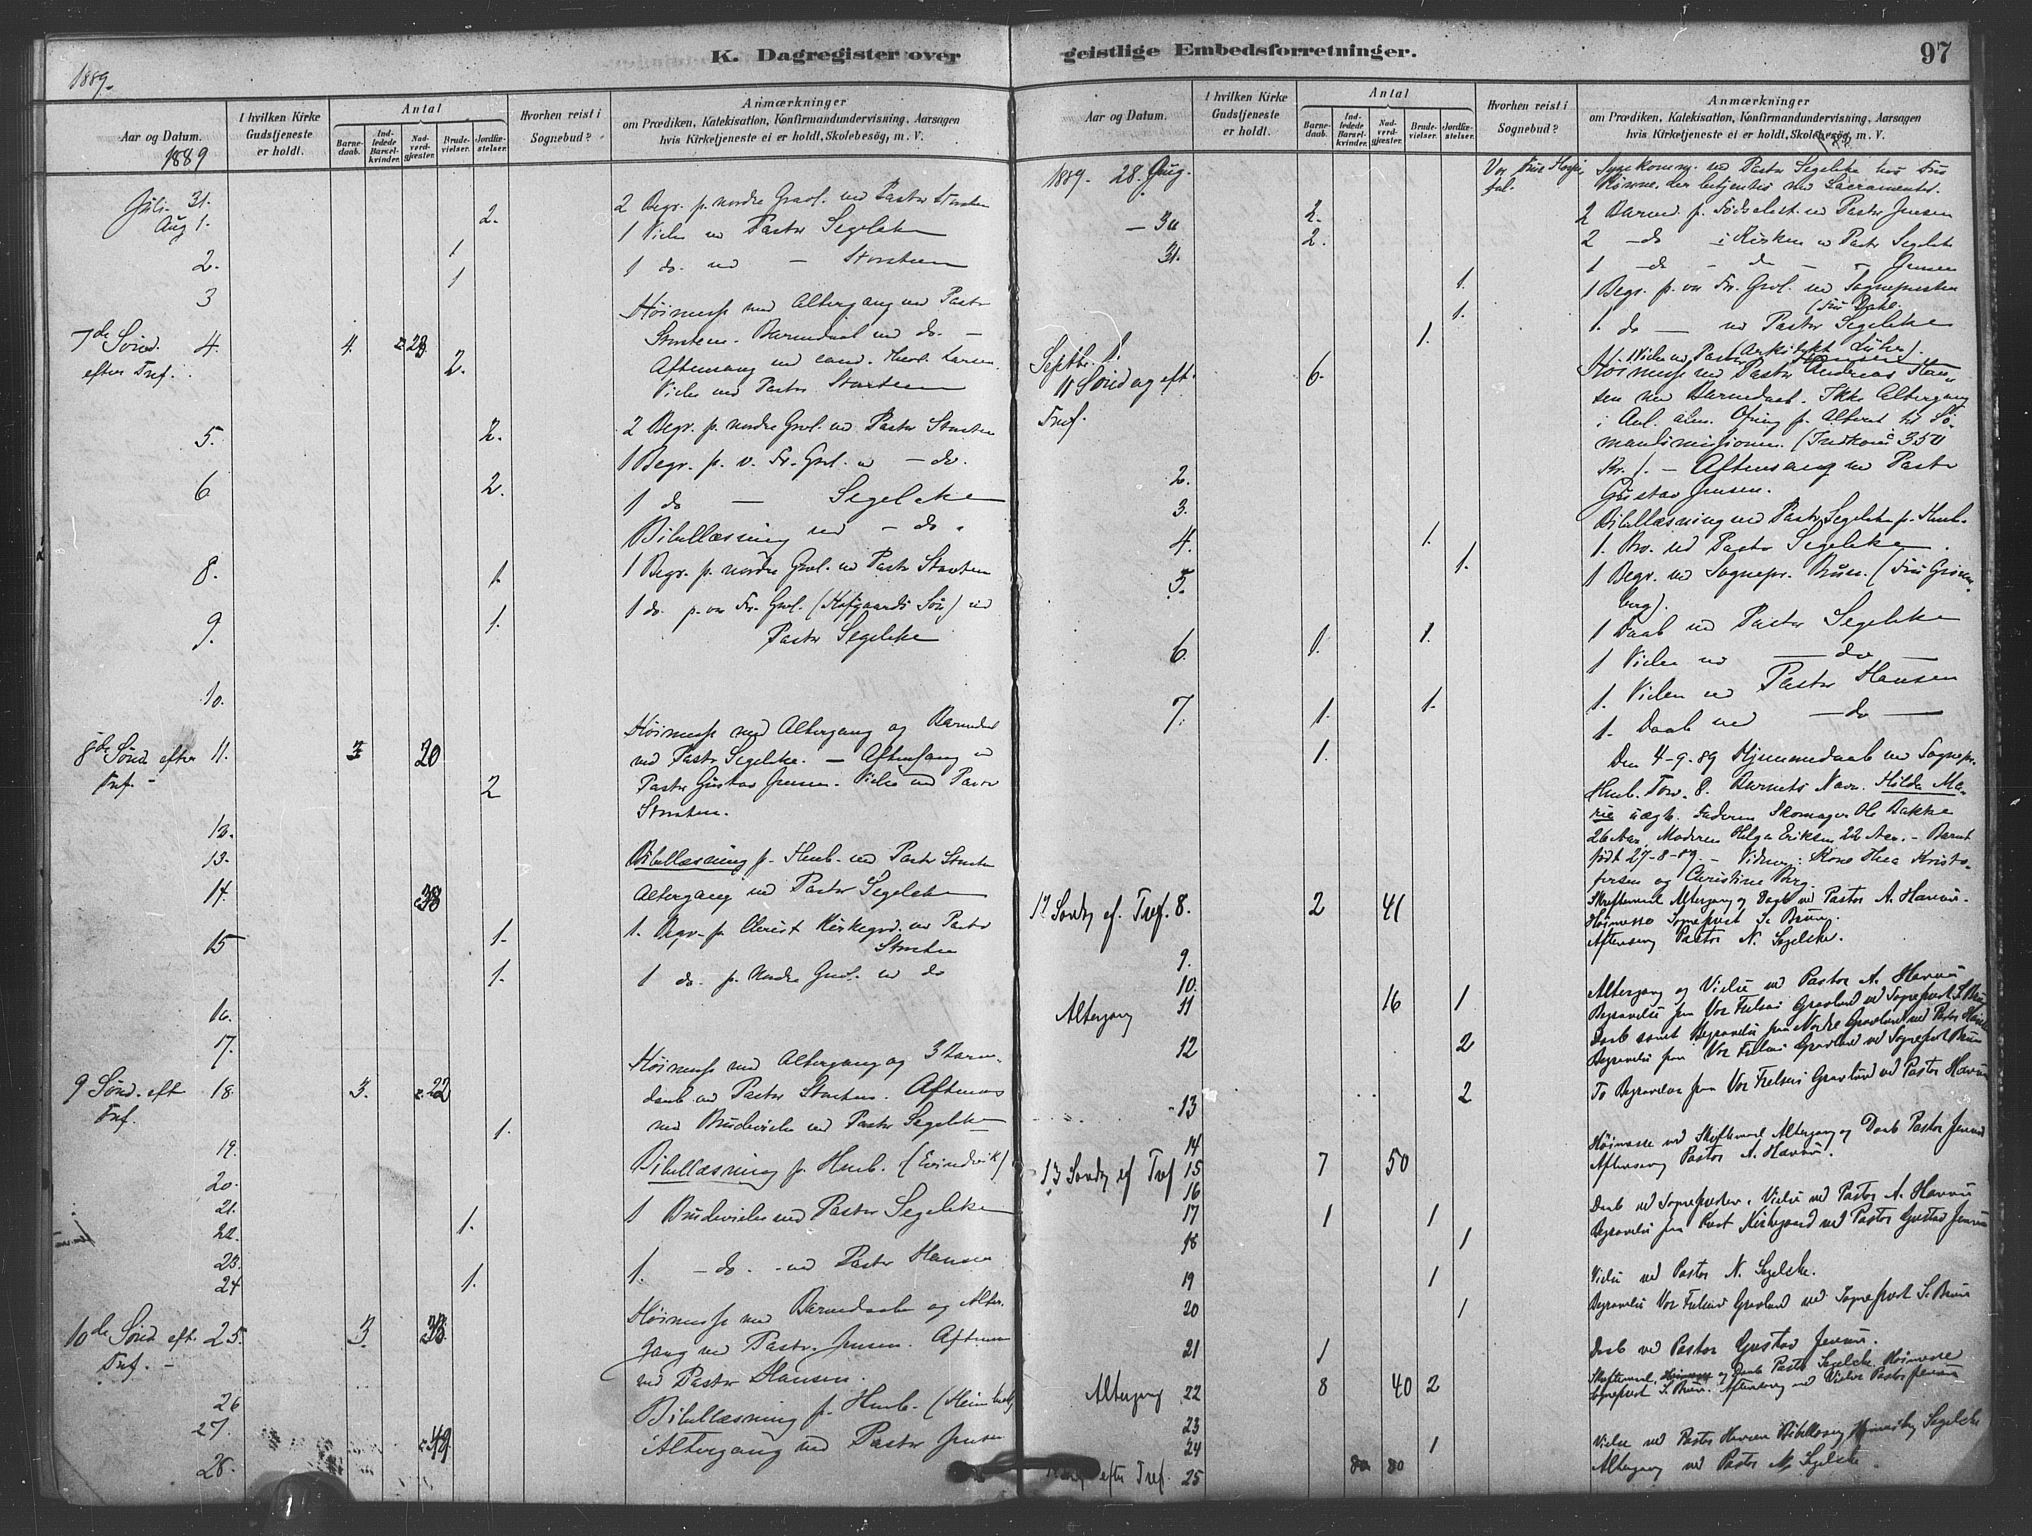 K. Dagregister over geistlige Embedsforretninger.
97
1889.
Aar og Datum.
I hvilken Kirke Gudstjeneste er holdt.
Antal
Barnedaab.
Indledede Barselkvinder.
Nadverdgjæster.
Brudevielser.
Jordfæstelser.
Hvorhen reist i Sognebud?
Anmærkninger
om Prædiken, Katekisation, Konfirmandundervisning, Aarsagen
hvis Kirketjeneste ei er holdt, Skolebesøg, m. V.
1889
Juli 31. 2. 2 Begr. p. nordre Gravl. ved Pastor Storsteen
Aug 1. 1 1 Vielse ved Pastor Segelcke
2. 1 1 do. ved — Storsteen
3
Høimesse med Altergang ved Pastor
7de Sønd. 4. 4. 23 Storsteen. Barnedaab ved do. —
efter Tref. 2. Aftensang ved cand. theol. Larsen
Vielse ved Pastor Storsteen
5. 2. 2 Begr. p. nordre Gravl. ved Pastor Storsteen
1 Begr. p. v. Fr. Gravl. v — do.
6 2. 1 do — Segelcke
Bibellæsning ved — do.
8. 1 1 Begr. p. nordre Gravl. ved Pastor Storsteen
9. 1. 1 do. p. vor Fr. Gravl. (Hofgaards Søn) ved
Pastor Segelcke
10.
Høimesse med Altergang og Barnedaab
8de Sønd. efter 11. 3 20 ved Pastor Segelcke. — Aftensang v
Tref. — 2 Pastor Gustav Jensen. Vielse ved Pastor
Storsteen.
12.
13. Bibellæsning p. Hmb. ved Pastor Storsteen
14. 38 Altergang ved Pastor Segelcke
15 1. 1. Begr. p. Christ Kirkegrd. ved Pastor
Storsteen
1. 1 do. p. Nordre Gravl. ved do
16.
17. Høimesse med Altergang og 3 Barne-
9 Sønd. eft 18. 3. 22 daab ved Pastor Storsteen. Aftensang
Tref. 1. med Brudevielse ved Pastor Segelcke
19. Bibellæsning p. Hmb. (Evindvik)
20.
21. 1. 1 Brudevielse ved Pastor Segelcke
22.
23. 1. — do. — ved Pastor Hansen
24 1.
Høimesse med Barnedaab og Alter-
10de Sønd. eft 25. 3. 33 gang ved Pastor Jensen. Aftensang
Tref. — ved Pastor Hansen.
26 Bibellæsning p. Hmb.
27. 49 Altergang ved Pastor Jensen
28.
Aar og Datum.
I hvilken Kirke Gudstjeneste er holdt.
Antal
Barnedaab.
Indledede Barselkvinder.
Nadverdgjæster.
Brudevielser.
Jordfæstelser.
Hvorhen reist i Sognebud?
Anmærkninger
om Prædiken, Katekisation, Konfirmandundervisning, Aarsagen
hvis Kirketjeneste ei er holdt, Skolebesøg, m. V.
1889. 28. Aug. Vor Frue Hospi- Sygekomm. ved Pastor Segelcke hos Fru
tal. der betjentes med Sacramentet.
2. 2 Barned. p. Fødselsst. v Pastor Jensen
— 30 2. 2 — do — i Kirken v Pastor Segelcke
31. 1 — do — do — Jensen
1. 1 Begr. p. vor Fr. Gravl. ved Sognepresten
1. (Fru Dahl.
1. 1. do — ved Pastor Segelcke
(Arkitekt Lühr).
Septbr. 1.
11 Søndag eft. 6. Høimesse ved Pastor Andreas Han-
Tref. sen med Barnedaab. Ikke Altergang
i Anl. alm. Ofring p. Alteret til Sø-
mandsmissionen. (Indkom 350
Kr.). — Aftensang ved Pastor
2. Gustav Jensen.
3. Bibellæsning ved Pastor Segelcke p. Hmb.
4. 1. 1. Brv. ved Pastor Segelcke.
5. 1. 1 Begr. ved Sognepr. Bruun. (Fru Grøn-
berg).
6. 1. 1. 1 Daab ved Pastor Segelcke
1 Vielse ved — do —
7. 1. 1. 1. Vielse ved Pastor Hansen
1. Daab ved — do —
1. Den 4-9-89 Hjemmedaab ved Sognepr.
Hmb. Torv. 8. Barnets Navn. Hilda Ma-
rie uægt. Faderen Skomager Ole Bakke
26 Aar, Moderen Helga Eriksen 22 Aar. — Barnet
født 27-8-89 — Vidner: Kone Thea Kristo-
fersen og Christine Berg.
12 Sønda ef. Tref. 8. 2 41 Skriftemaal Altergang og Daab ved Pastor A. Hansen.
Høimesse Sogneprest S. Bruun
Aftensang Pastor N. Segelcke.
9.
10.
Altergang 11 16 1 Altergang og Vielse ved Pastor A. Hansen
Begravelse fra Vor Frelsers Gravlund ved Sogneprest S. Bruun
12 2 Daab samt Begravelse fra Nordre Gravlund ved Pastor Hansen
Begravelse fra Vor Frelsers Gravlund ved Sogneprest Bruun
13 2 To Begravelser fra Vor Frelsers Gravlund ved Pastor Hansen
14 Høimesse ved Skriftemaal Altergang og Daab Pastor Jensen
13 Sønda ef Tref 15 7 50 Aftensang Pastor A. Hansen.
16
17 1 1 Daab ved Sognepresten. Vielse ved Pastor A. Hansen
18 1 Begravelse fra Krist Kirkegaard ved Pastor Gustav Jensen
19 1 Vielse ved Pastor N. Segelcke.
20 1 Begravelse Vor Frelsers Gravlund ved Sogneprest S. Bruun
21 1 Daab ved Pastor Gustav Jensen.
Altergang 22 8 40 2 Skriftemaal, og Daab Pastor Segelcke Høimesse
Sogneprest S. Bruun. Aftensang ved Vielse Pastor Jensen
23
24 1 Vielse ved Pastor Hansen Bibellæsning Segelcke
efter Tref. 25 Altergang ved Pastor N. Segelcke.